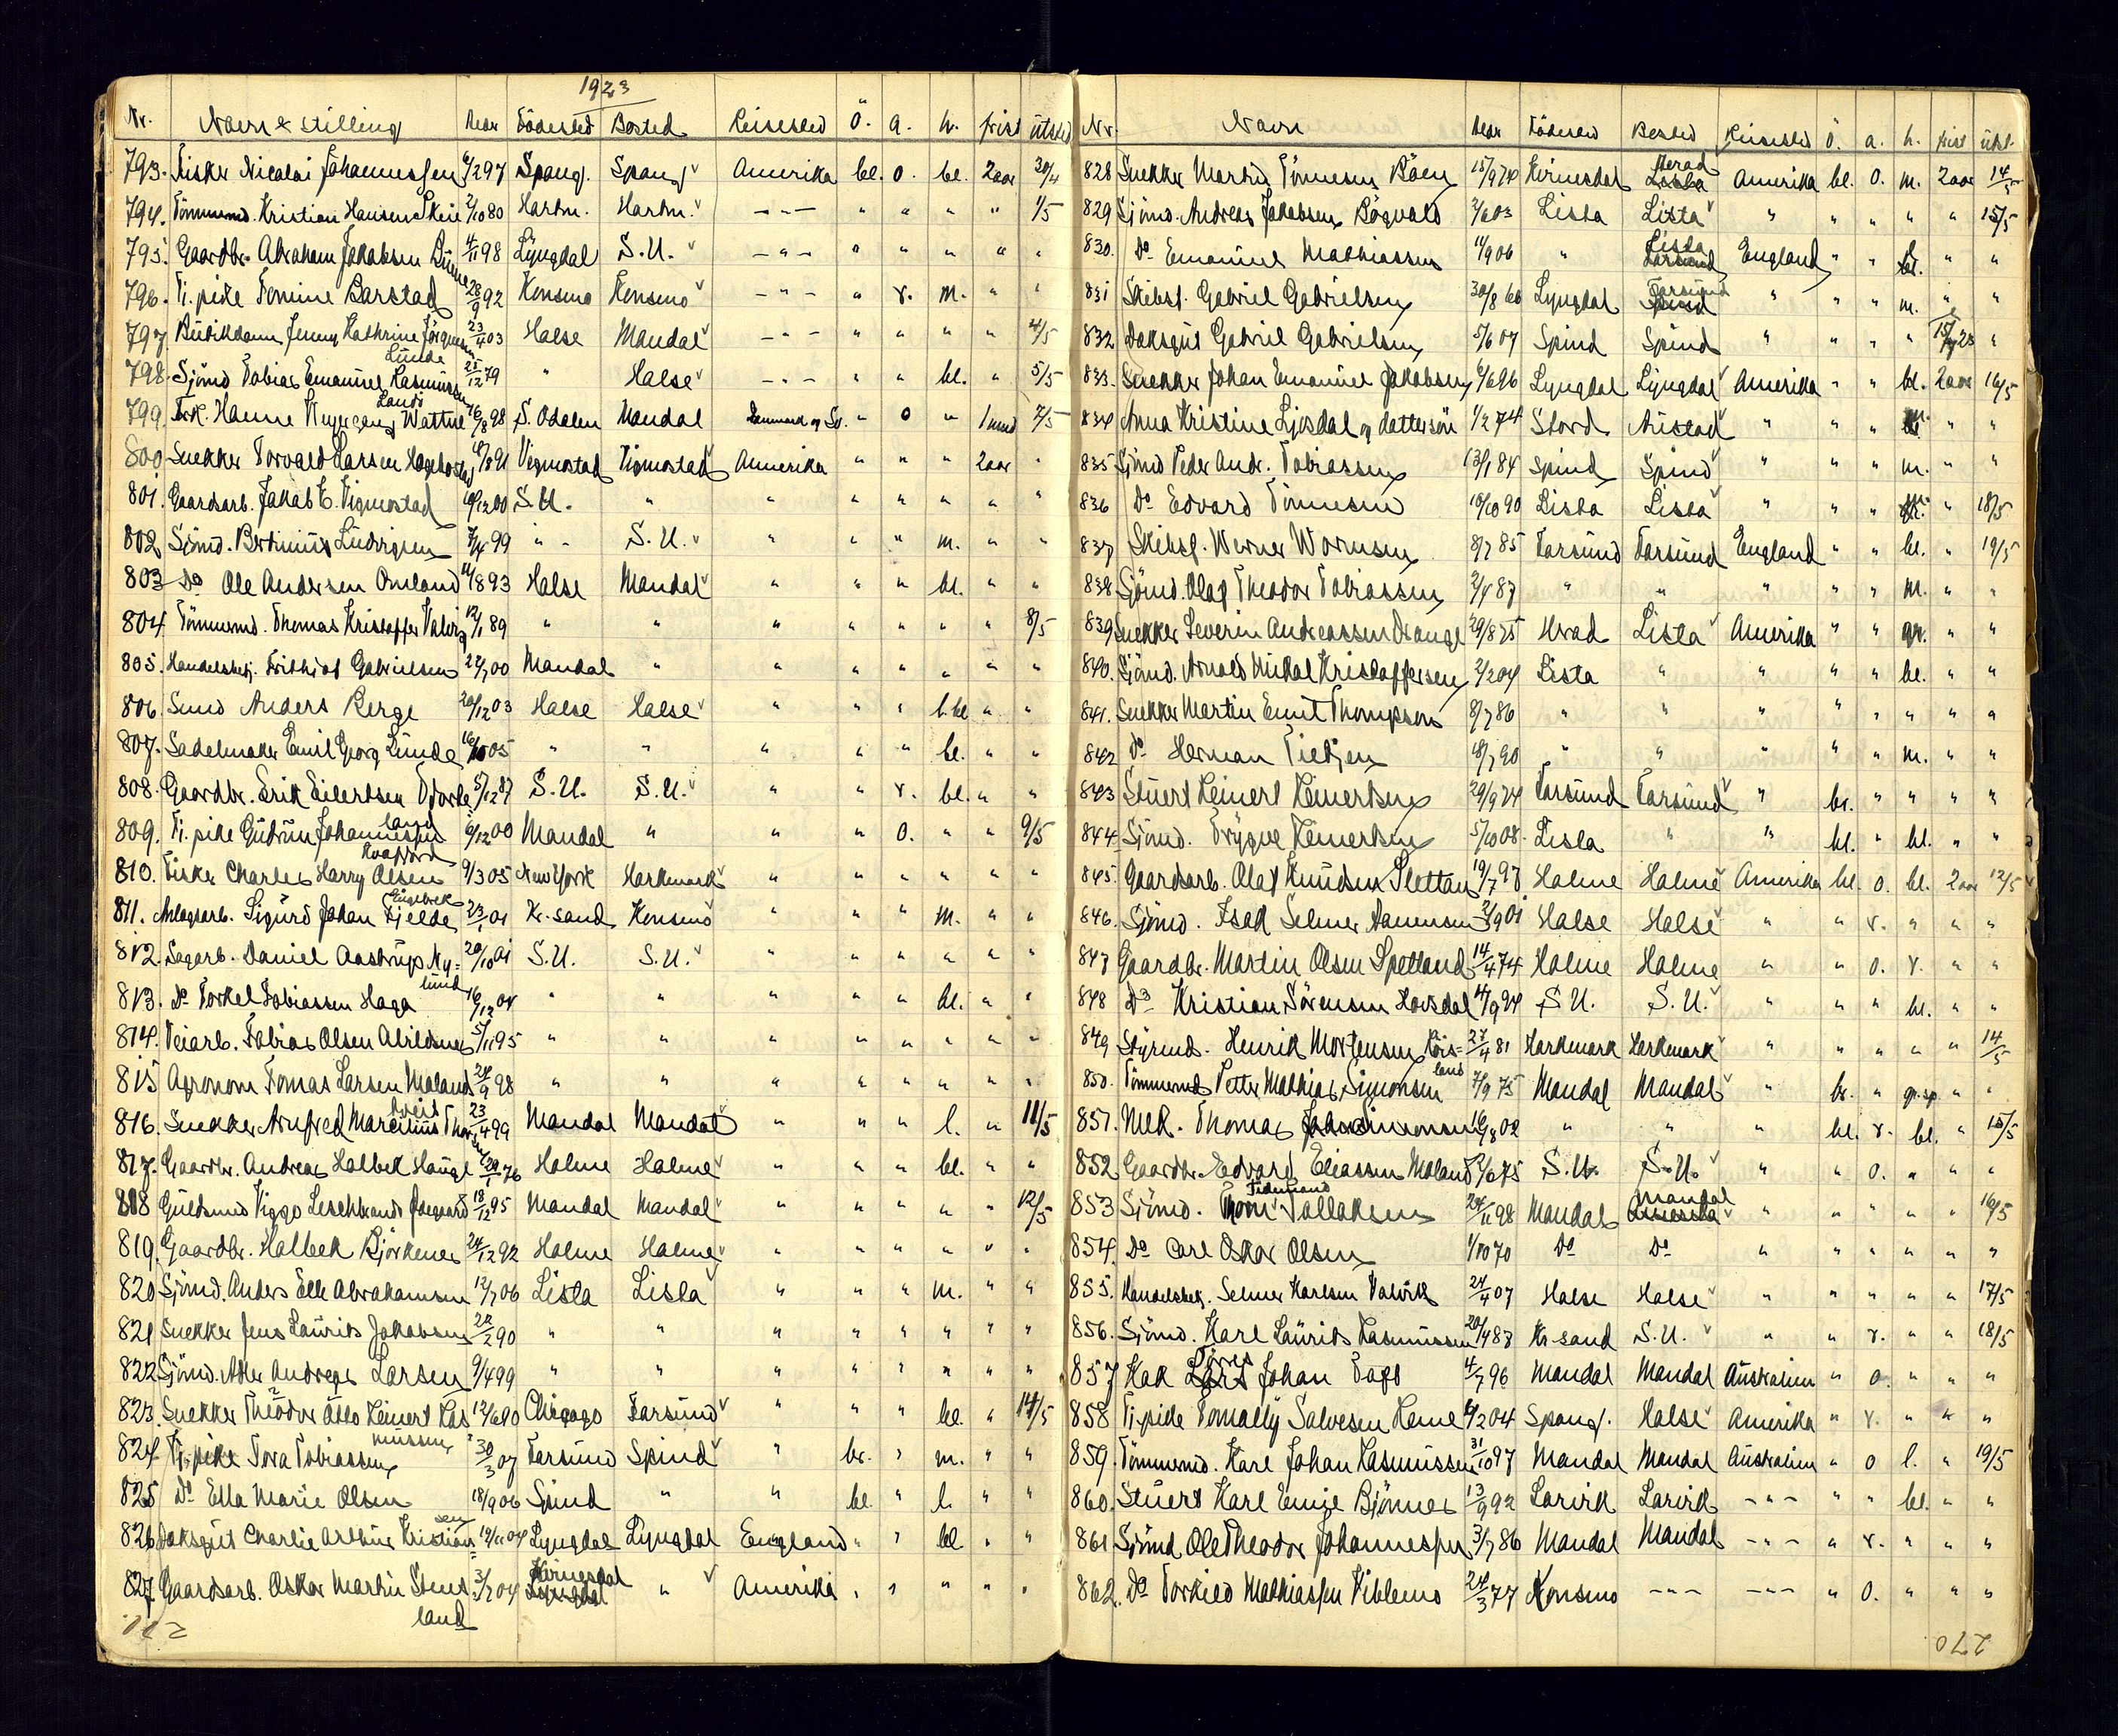 1923
Nr. Navn & stilling Födested Bosted Reisested Ö. a. h. frist utsted
793. Fisker Nicolai Johannessen 6/2 97 Spang. Spang. Amerika bl. o. bl. 2 aar 30/4
794. Tömmermd. Kristian Hansen Skeie 2/10 80 Hartm. Hartm. -"- " " " " 1/5
795. Gaardbr. Abraham Jakobsen 4/11 98 Lyngdal S.U. -"- " " " " "
796. Ti. pike Tomine Barstad 28/9 92 Konsmo Konsmo -"- " r. m. " "
797 Butikdame Jenny Kathrine Jörgensen 23/4 03 Halse Mandal -"- " " " " 4/5
Lunde
798. Sjömd Tobias Emanuel Rasmussen 25/12 79 " Halse -"- " " bl. " 5/5
799. Frk. Hanne Wattne 16/8 98 S. Odalen Mandal Danmark og Sv. " o " 1 mnd 7/5
800 Snekker Torvald Larsen Hogstad 18/8 91 Vigmostad Vigmostad Amerika " " " 2 aar "
801. Gaardarb. Jakob E. Vigmostad 10/12 00 S.U. " " " " " " "
802 Sjömd. Bertinius Ludvigsen 7/4 99 " - S.U. " " " m. " "
803 Do Ole Andersen Omland 14/8 93 Halse Mandal " " " bl. " "
804 Tömmermd. Thomas Kristoffer Valvig 12/1 89 " " " " " " " 8/5
805. Handelsbetj. Frithjof Gabrielsen 27/7 00 Mandal " " " " " " "
806. Smed Anders Berge 20/12 03 Halse Halse " " " l.bl " "
807. Sadelmaker Emil Georg Lunde 16/10 05 " " " " " bl. " "
808. Gaardbr. Erik Eilertsen 5/12 87 S.U. S.U. " " r. bl. " "
land
809. Ti. pike Gudrun Johannessen 6/12 00 Mandal " " " o. " " 9/5
Kvafjord
810. Fisker Charles Harry Olsen 9/3 05 New York Harkmark " " " " " "
Engebrek
811. Anlegsarb. Sigurd Johan Fjelde 23/1 01 Kr.sand Konsmo " " " m. " "
812. Sagarb. Daniel Aastrup Ny= 20/10 01 S.U. S.U. " " " " " "
lund
813. Do Torkel Tobiassen Haga 16/12 04 " " " " " bl. " "
814. Veiarb. Tobias Olsen Abildsnes 5/11 95 " " " " " " " "
815 Agronom Tomas Larsen Moland 24/9 98 " " " " " " " "
816. Snekker Arnfred Marcelius 23/4 99 Mandal Mandal " " " l. " 11/5
817. Gaardbr. Andreas Holbek Hauge 29/1 76 Holme Holme " " " bl. " "
818 Guldsmed Viggo Leschbrandt 18/12 95 Mandal Mandal " " " " " 12/5
819. Gaardbr. Holbek Björkenes 24/12 92 Holme Holme " " " " " "
820 Sjömd. Anders Elle Abrahamsen 12/7 06 Lista Lista " " " m. " "
821 Snekker Jens Laurits Jakobsen 22/2 90 " " " " " " " "
822 Sjömd. Andreas Larsen 9/4 99 " " " " " " " "
823. Snekker Theodor Otto Reinert Ras 12/6 80 Chicago Farsund " " " bl. " 14/5
mussen
824 Ti.pike Tora Tobiassen 30/3 07 Farsund Spind " br. " m. " "
825 Do Ella Marie Olsen 18/9 06 Spind " " bl. " l. " "
sen
826 Daksgut Charlie Arthur Kristian= 19/11 04 Lyngdal Lyngdal England " " bl. " "
Kvinesdal
827 Gaardsarb. Oskar Martin Stens 3/7 04 Lyngdal " Amerika " " " " "
land
Nr. Navn Födested Bosted Reisested Ö. a. h. frist utst.
Herad
828 Snekker Martin Tönnesen Böen 15/9 74 Kvinesdal Lista Amerika bl. o. m. 2 aar 14/5
829 Sjömd. Andreas Jakobsen Rögvald 2/6 03 Lista Lista " " " " " 15/5
Lista
830. Do Emanuel Mathiassen 11/9 06 " Farsund England " " bl. " "
Farsund
831 Skibsf. Gabriel Gabrielsen 30/8 66 Lyngdal Spind " " " m. " "
832 Daksgut Gabriel Gabrielsen 5/6 07 Spind Spind " " " " 15/7 23 "
833. Snekker Johan Emanuel Jakobsen 6/6 96 Lyngdal Lyngdal Amerika " " bl. 2 aar 16/5
834 Anna Kristine Ljosdal og dattersön 1/2 74 Stord " " " m. " "
835 Sjömd Peder Andr. Tobiassen 13/1 84 Spind Spind " " " m. " "
836 Do Edvard Tönnesen 10/10 90 Lista Lista " " " " 18/5
837 Skibsf. Werner Wornsen 8/7 85 Farsund Farsund England " " bl. " 19/5
838 Sjömd. Olaf Theodor Tobiassen 2/4 87 " " " " " m. " "
839 Snekker Severin Andreassen Drange 29/8 75 Herad Lista Amerika " " gr. " "
840. Sjömd. Arnold Mikal Kristoffersen 2/2 04 Lista " " " " bl. " "
841. Snekker Martin Emil Thompson 8/7 86 " " " " " " " "
842 Do Herman Tietjen 18/7 90 " " " " " m. " "
843 Stuert Reinert Reinertsen 29/9 74 Farsund Farsund " br. " " " "
844 Sjömd. Trygve Reinertsen 5/10 08. Lista " " bl. " bl. " "
845. Gaardsarb. Olaf Knudsen Slettan 19/7 97 Holme Holme Amerika bl. o. bl. 2 aar 12/5
846. Sjömd. Isak Selmer 3/9 01 Halse Halse " " r. " " "
847 Gaardbr. Martin Olsen Spetland 14/4 74 Holme Holme " " o. r. " "
848 Do Kristian Sörensen Hovsdal 4/9 94 S.U. S.U. " " " bl. " "
849 Styrmd. Henrik Mortensen Röis= 27/4 81 Harkmark Harkmark " " " " " 14/5
land
850. Tömmermd Petter Mathias Simonsen 7/9 75 Mandal Mandal " br. " gr.sp. " "
851. Mek. Thomas 16/8 02 " " " bl. r. bl. " 15/5
852 Gaardbr. Edvard Eliassen Moland 2/6 75 S.U. S.U. " " o. " " "
Ferdinand Mandal
853 Sjömd. Thom Tallaksen 24/11 98 Mandal " " " " " 16/5
854. Do Carl Oskar Olsen 1/10 70 Do Do " " " " " "
855. Handelsbetj. Selmer Karlsen Valvik 24/4 07 Halse Halse " " " " " 17/5
856. Sjömd. Karl Laurits Rasmussen 20/4 87 Kr.sand S.U. " " r. " " 18/5
857 Kok Johan Toft 4/7 96 Mandal Mandal Australien " o. " " "
858 Ti.pike Tomally Salvesen Heme 6/2 04 Spang. Halse Amerika " r. " " "
859. Tömmermd. Karl Johan Rasmussen 31/10 97 Mandal Mandal Australien " o l. " 19/5
860. Stuert Karl Björnnes 13/9 92 Larvik Larvik -"- " " bl. " "
861 Sjömd Ole Theodor Johannessen 3/7 86 Mandal Mandal -"- " r. " " "
862. Do Torkild Mathiassen Viblemo 24/3 77 Konsmo -"- -"- " o. " " "
270